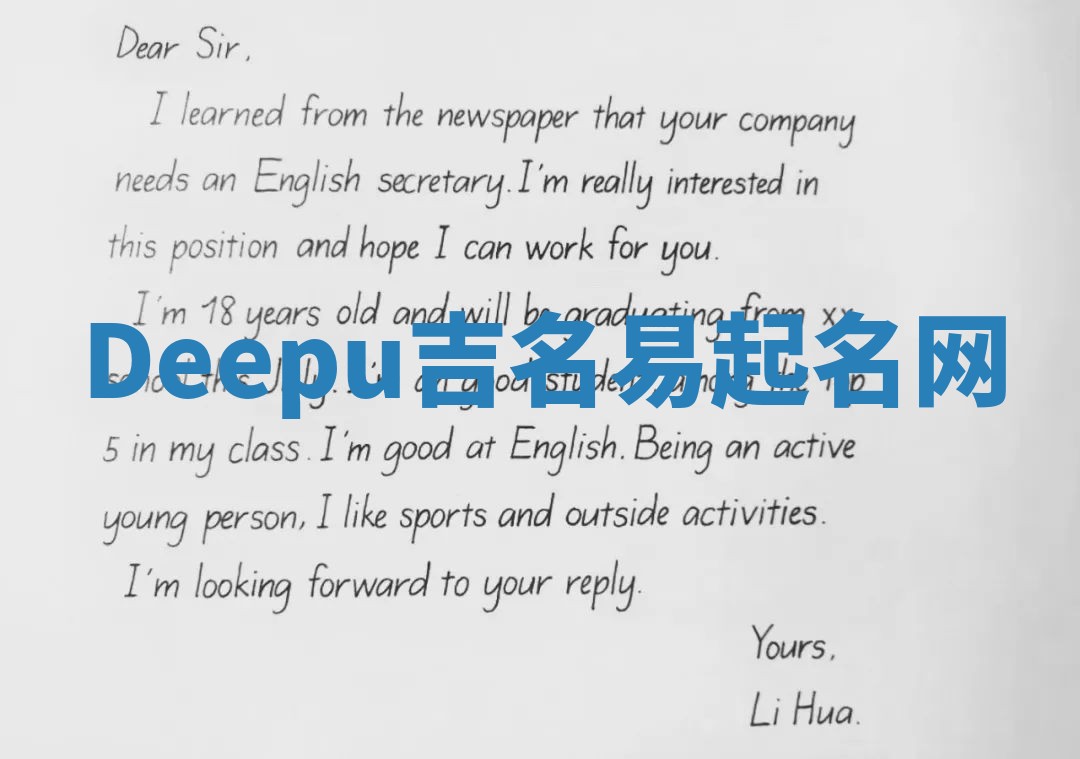 Dear Sir,
I learned from the newspaper that your company
needs an English secretary. I'm really interested in
this position and hope I can work for you.
I'm 18 years old and will be graduating from xx
Deepu吉名易起名网
school this July. I'm good student among the top
5 in my class. I'm good at English. Being an active
young person, I like sports and outside activities.
I'm looking forward to your reply.
Yours,
Li Hua.